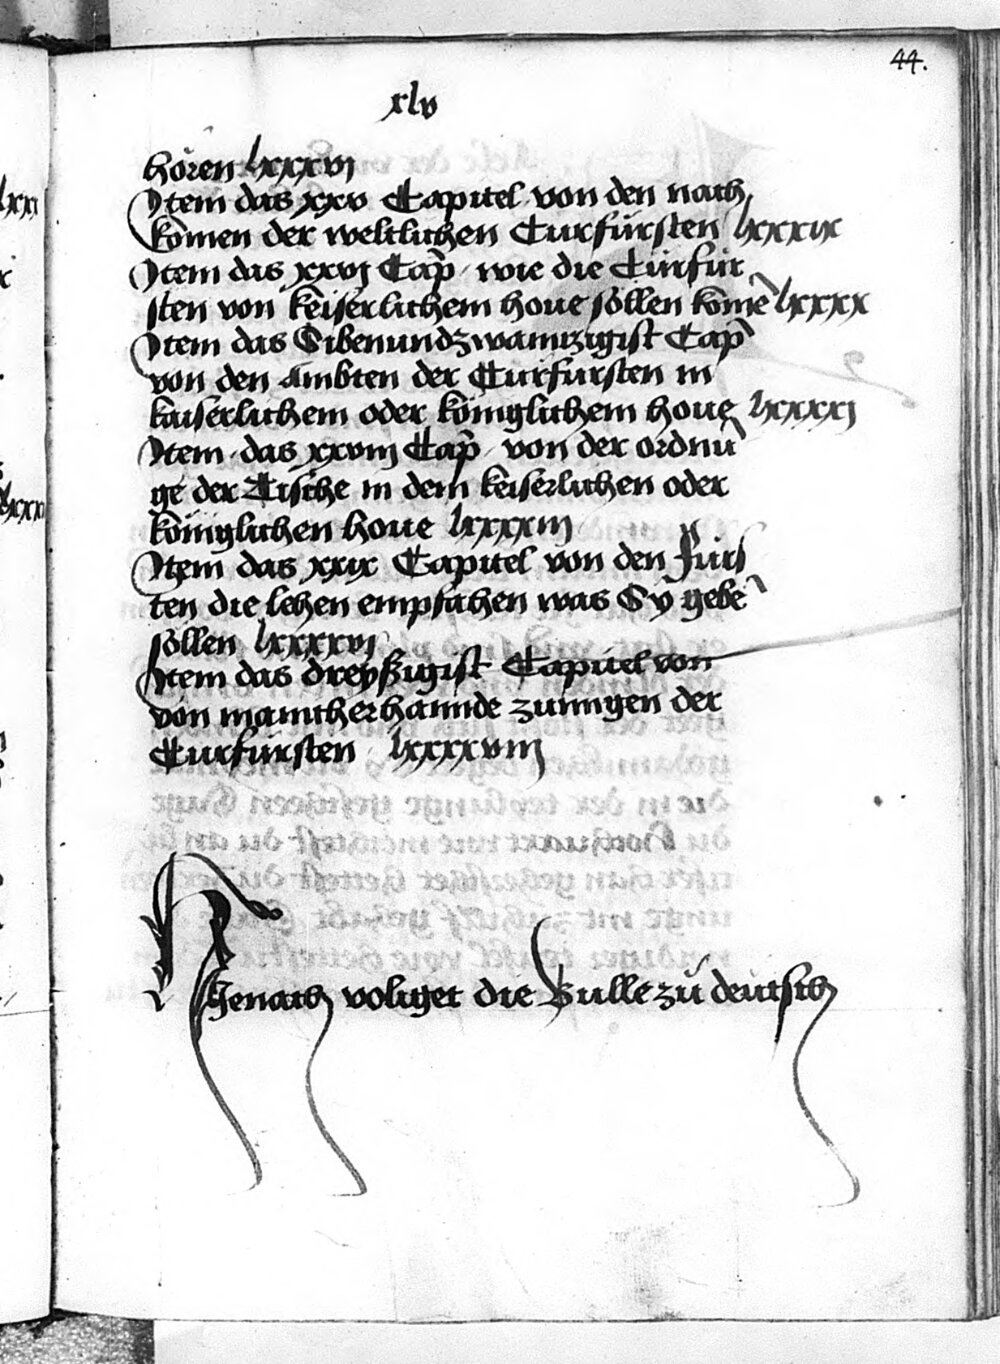 44.
xlv
hören lxxxvj
Item das xxv Capitel von den nach
komen der weltlichen Curfürsten lxxxix
Item das xxvj Cap̄ wie die Curfür
sten von keiserlichem houe söllen komē lxxxx
Item das Sibenundzwainzigist Cap̄
von den Ambten der Curfursten in
kaiserlichem oder königlichem houe lxxxxj
Item das xxviij Cap̄ von der ordnū
ge der Tische in dem keiserlichen oder
königlichen houe lxxxxiij
Item das xxix Capitel von den Fürs
ten die lehen empfahen was Sÿ gebē
söllen lxxxxvj
Item das dreyßigist Capitel von
von maincherhannde zunngen der
Curfürsten lxxxxviij
Hienach volget die Bulle zů deutsch